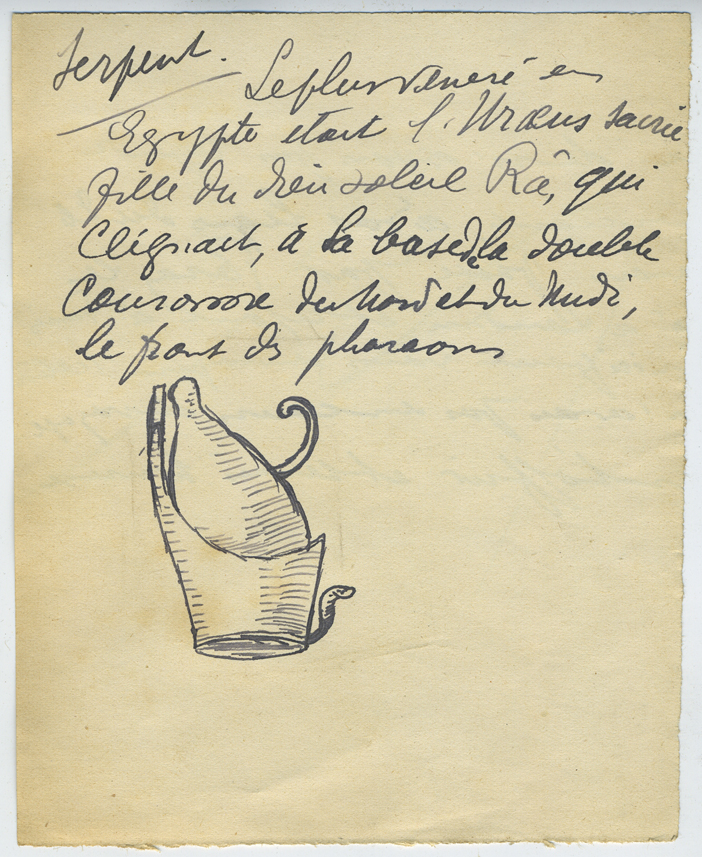 Serpent.
Le plus vénéré en
Egypte était l'Uraeus sacrée
fille du dieu soleil Râ, qui
Ceignait, à la base de la double
Couronne du Nord et du Midi,
le front des pharaons